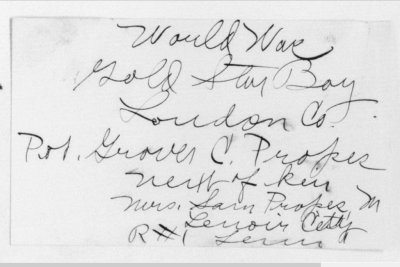 Would War
Gold Star Boy
Loudon Co.
Pvt. Grover C. Propes
next of kin
Mrs. Sam Propes M
Lenoir Citty
R #1 Tenn